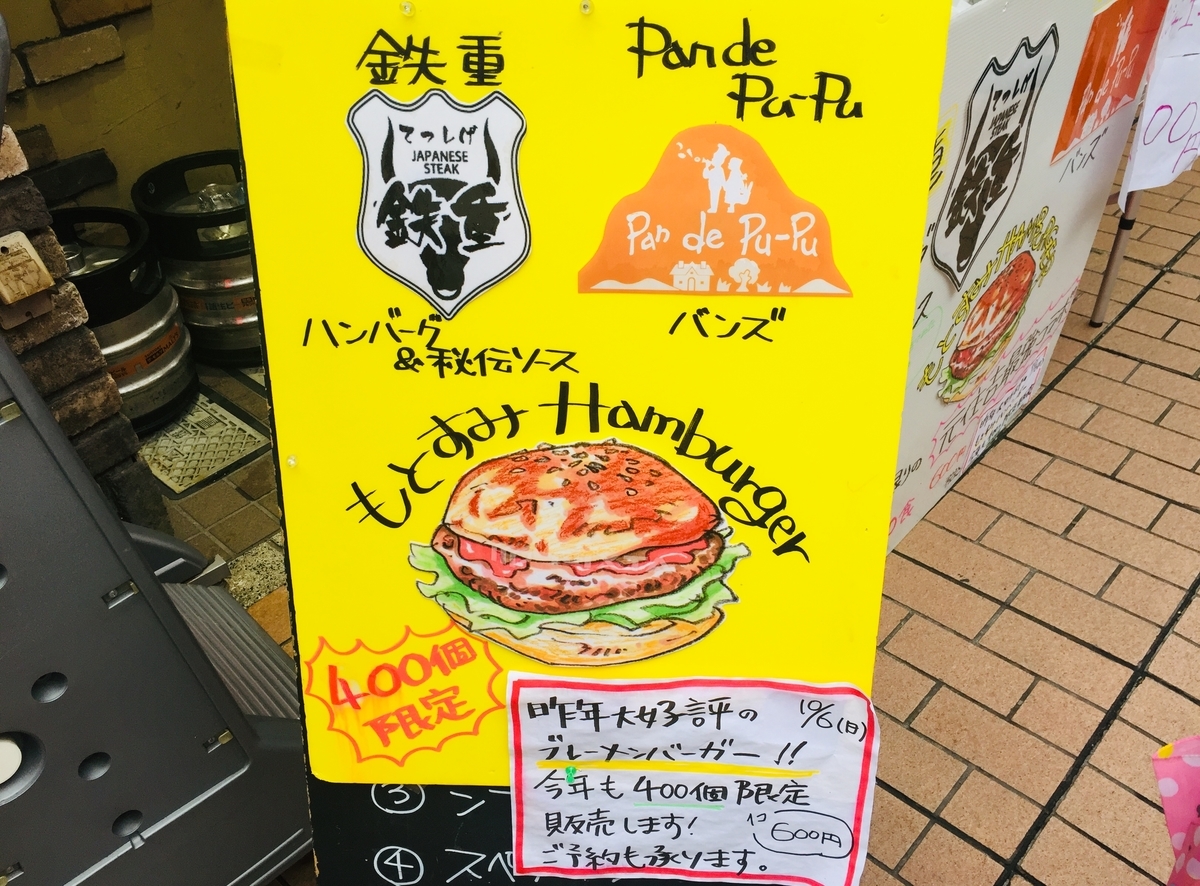 鉄重
てっしげ
JAPANESE
STEAK
鉄重
ハンバーグ
&秘伝ソース
Pan de
Pu-Pu
Pan de Pu-Pu
バンズ
もとすみ Hamburger
400個
限定
昨年大好評の 10/6(日)
ブレーメンバーガー!!
今年も400個限定
販売します! 1コ 600円
ご予約も承ります。
③
④ スペ
てっしげ
JAPANESE
STEAK
鉄重
バンズ